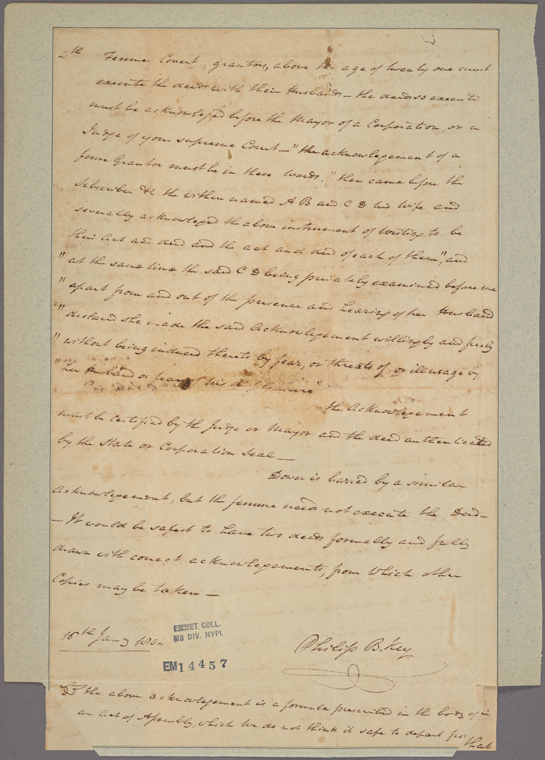 4th Femme Covert grantors, above the age of twenty one must
execute the deeds with their Husbands — the deeds so executed
must be acknowledged before the Mayor of a Corporation, or a
Judge of your supreme Court — "the acknowlegement of a
feme Grantor must be in these words." then came before the
Subscriber &c the within named A B and C D his wife and
severally acknowleged the above instrument of writing to be
their Act and deed and the act and deed of each of them", and
" at the same time the said C D being privately examined before me
" apart from and out of the presence and hearing of her Husband
" declared she made the said Acknowlegement willingly and freely
" without being induced thereto by fear, or threats of, or ill usage by
" her Husband or fear of his displeasure"
the acknowlegement
must be certified by the Judge or Mayor and the deed authenticated
by the State or Corporation Seal —
Dower is barred by a similar
acknowlegement, but the femme need not execute the Deed —
— It would be safest to have two deeds formally and fully
drawn with correct acknowlegements, from which other
Copies may be taken —
EMMET COLL.
MS DIV. NYPL
18th Jany
Philip B. Key
EM14457
the above acknowlegement is a formula prescribed in the body of
an Act of Assembly which we do not think it safe to depart from
that